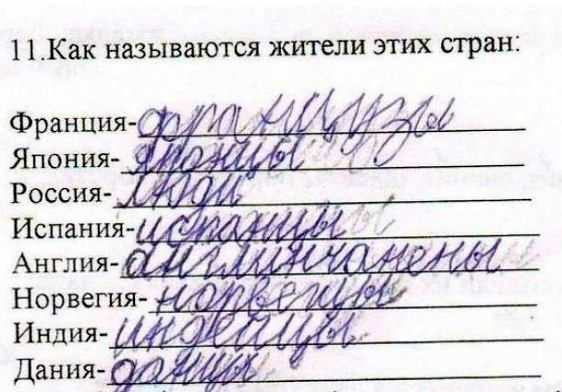 11.Как называются жители этих стран:
Франция-французы
Япония-японцы
Россия-люди
Испания-испанцы
Англия-англинчанены
Норвегия-норвегцы
Индия-индейцы
Дания-данцы